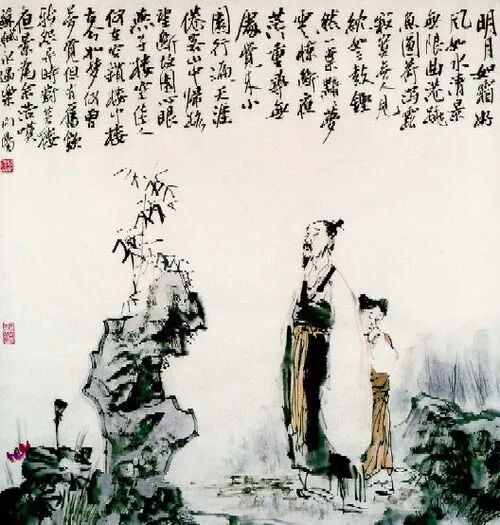 明月如霜好
風如水清景
無限曲港跳
魚圓荷瀉露
寂寞無人見
紞如三鼓鏗
然一葉黯黯夢
雲驚斷夜
茫茫重尋無
處覺來小
園行遍天涯
倦客山中歸路
望斷故園心眼
燕子樓空佳人
何在空鎖樓中
古今如夢何曾
夢覺但有舊歡
新怨異時對黃樓
夜景為余浩嘆
蘇軾永遇樂